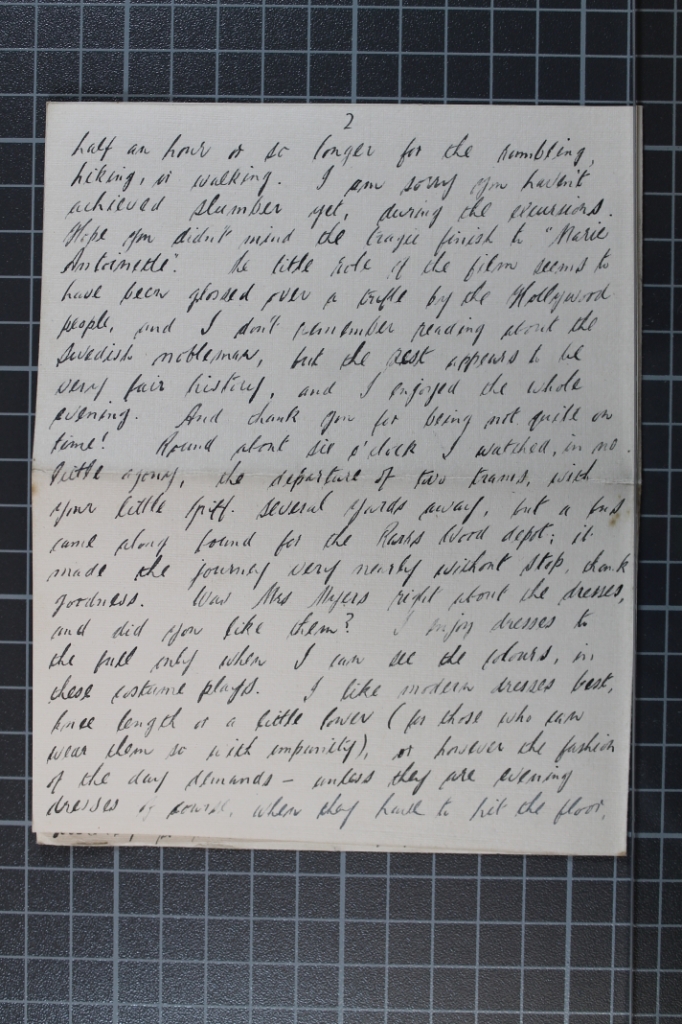 2
half an hour or so longer for the rambling,
hiking, or walking. I am sorry you haven't
achieved slumber yet, during the excursions.
Hope you didn't mind the tragic finish to "Marie
Antoinette". The title role of the film seems to
have been glossed over a trifle by the Hollywood
people, and I don't remember reading about the
Swedish nobleman, but the rest appears to be
very fair history, and I enjoyed the whole
evening. And thank you for being not quite on
time! Round about six o'clock I watched, in no
little agony, the departure of two trams, with
your little spiff. several yards away, but a bus
came along bound for the Parks Wood depot; it
made the journey very nearly without stop, thank
goodness. Was Mrs Myers right about the dresses,
and did you like them? I enjoy dresses to
the full only when I can see the colours, in
these costume plays. I like modern dresses best,
knee length or a little lower (for those who can
wear them so with impunity), or however the fashion
of the day demands – unless they are evening
dresses of course, when they have to hit the floor.